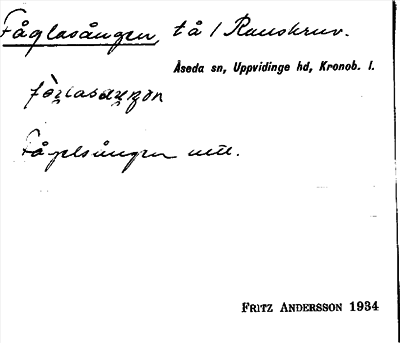 Fåglasången, tå / Ranskruv.
Åseda sn, Uppvidinge hd, Kronob. l.
Fågelsången utt.
FRITZ ANDERSSON 1934